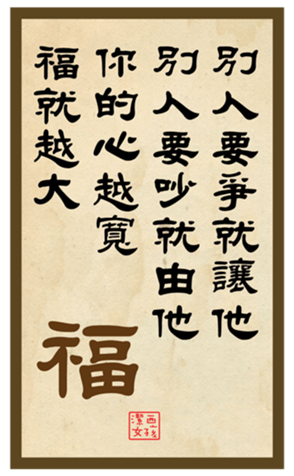 別人要爭就讓他
別人要吵就由他
你的心越寬
福就越大
福